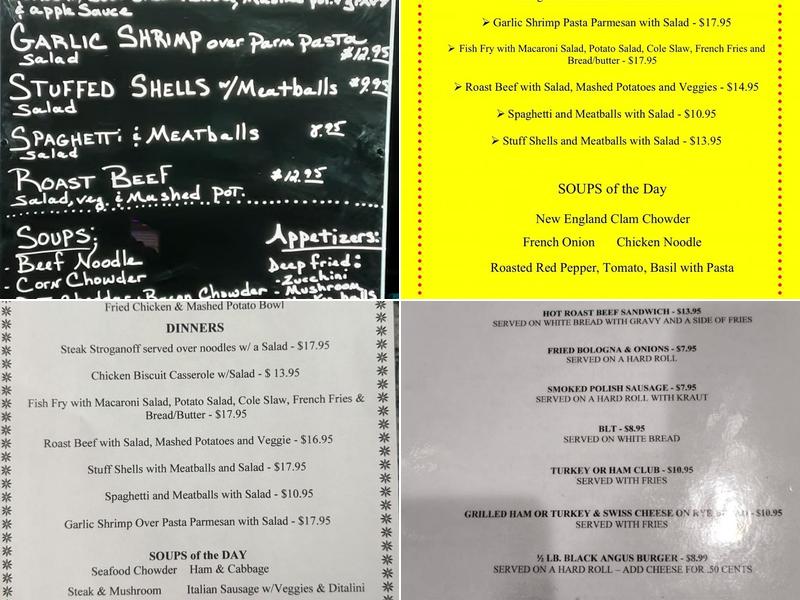 & apple Sauce
GARLIC SHRIMP over Parm Pasta
Salad $12.95
STUFFED SHELLS w/Meatballs $9.95
Salad
SPAGHETTI & MEATballs 8.95
Salad
ROAST BEEF $12.95
Salad, veg. & Mashed POT.
SOUPS:
- Beef Noodle
- CORN Chowder
Bacon Chowder
Appetizers:
Deep fried:
- Zucchini
- Mushroom
➢ Garlic Shrimp Pasta Parmesan with Salad - $17.95
➢ Fish Fry with Macaroni Salad, Potato Salad, Cole Slaw, French Fries and
Bread/butter - $17.95
➢ Roast Beef with Salad, Mashed Potatoes and Veggies - $14.95
➢ Spaghetti and Meatballs with Salad - $10.95
➢ Stuff Shells and Meatballs with Salad - $13.95
SOUPS of the Day
New England Clam Chowder
French Onion Chicken Noodle
Roasted Red Pepper, Tomato, Basil with Pasta
Fried Chicken & Mashed Potato Bowl
DINNERS
Steak Stroganoff served over noodles w/ a Salad - $17.95
Chicken Biscuit Casserole w/Salad - $ 13.95
Fish Fry with Macaroni Salad, Potato Salad, Cole Slaw, French Fries &
Bread/Butter - $17.95
Roast Beef with Salad, Mashed Potatoes and Veggie - $16.95
Stuff Shells with Meatballs and Salad - $17.95
Spaghetti and Meatballs with Salad - $10.95
Garlic Shrimp Over Pasta Parmesan with Salad - $17.95
SOUPS of the DAY
Seafood Chowder Ham & Cabbage
Steak & Mushroom Italian Sausage w/Veggies & Ditalini
HOT ROAST BEEF SANDWICH - $13.95
SERVED ON WHITE BREAD WITH GRAVY AND A SIDE OF FRIES
FRIED BOLOGNA & ONIONS - $7.95
SERVED ON A HARD ROLL
SMOKED POLISH SAUSAGE - $7.95
SERVED ON A HARD ROLL WITH KRAUT
BLT - $8.95
SERVED ON WHITE BREAD
TURKEY OR HAM CLUB - $10.95
SERVED WITH FRIES
GRILLED HAM OR TURKEY & SWISS CHEESE ON RYE BREAD - $10.95
SERVED WITH FRIES
½ LB. BLACK ANGUS BURGER - $8.99
SERVED ON A HARD ROLL – ADD CHEESE FOR .50 CENTS